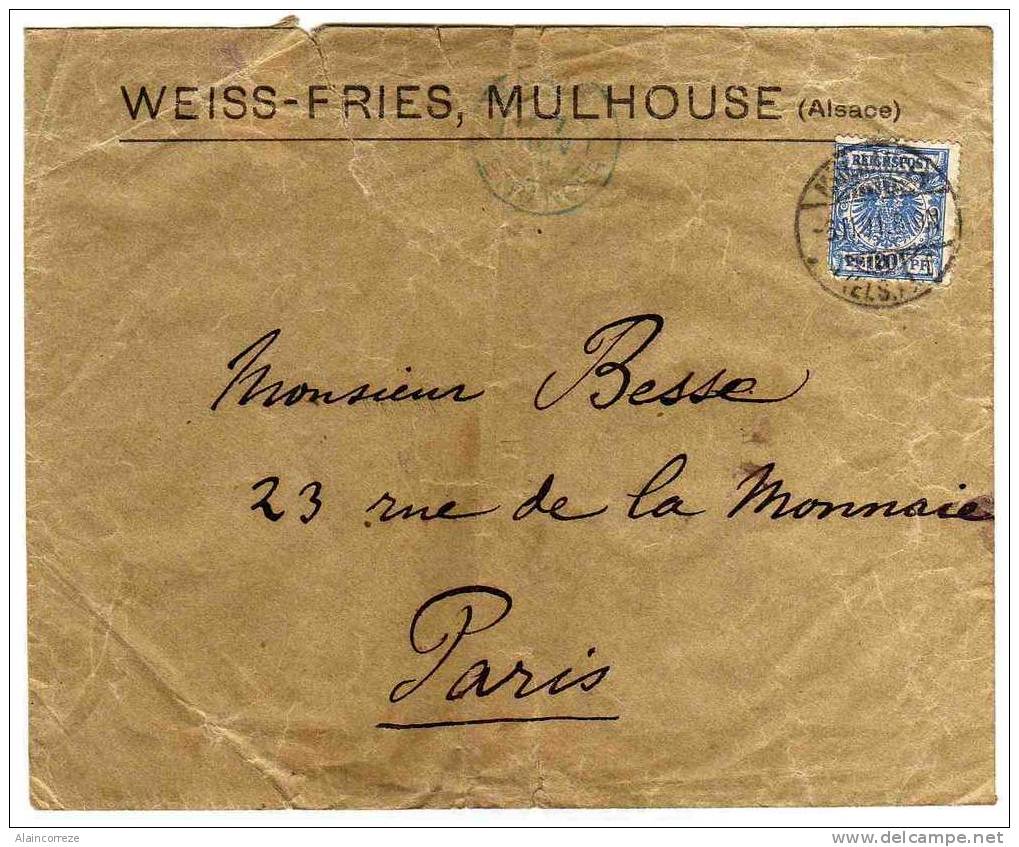 WEISS-FRIES, MULHOUSE (Alsace)
REICHSPOST
20
PF
Monsieur Besse
23 rue de la Monnaie
Paris
Alaincorreze
www.delcampe.net